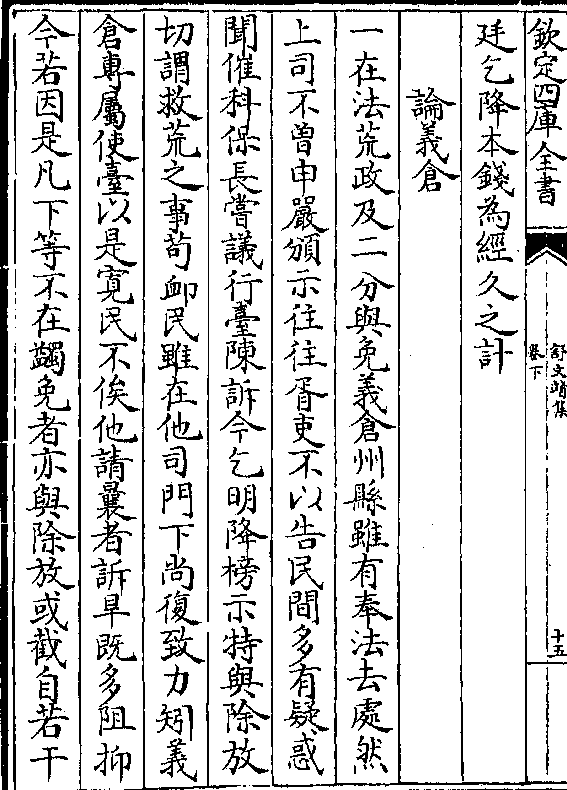 欽定四庫全書
舒文靖集
卷下
十五
廷乞降本錢為經久之計
論義倉
一在法荒政及二分與免義倉州縣雖有奉法去處然
上司不曾申嚴頒示往往胥吏不以告民間多有疑惑
聞催科保長嘗議行臺陳訴今乞明降榜示特與除放
切謂救荒之事苟䘏民雖在他司門下尚復致力矧義
倉專屬使臺以是寛民不俟他請曩者訴旱既多阻抑
今若因是凡下等不在蠲免者亦與除放或截自若干